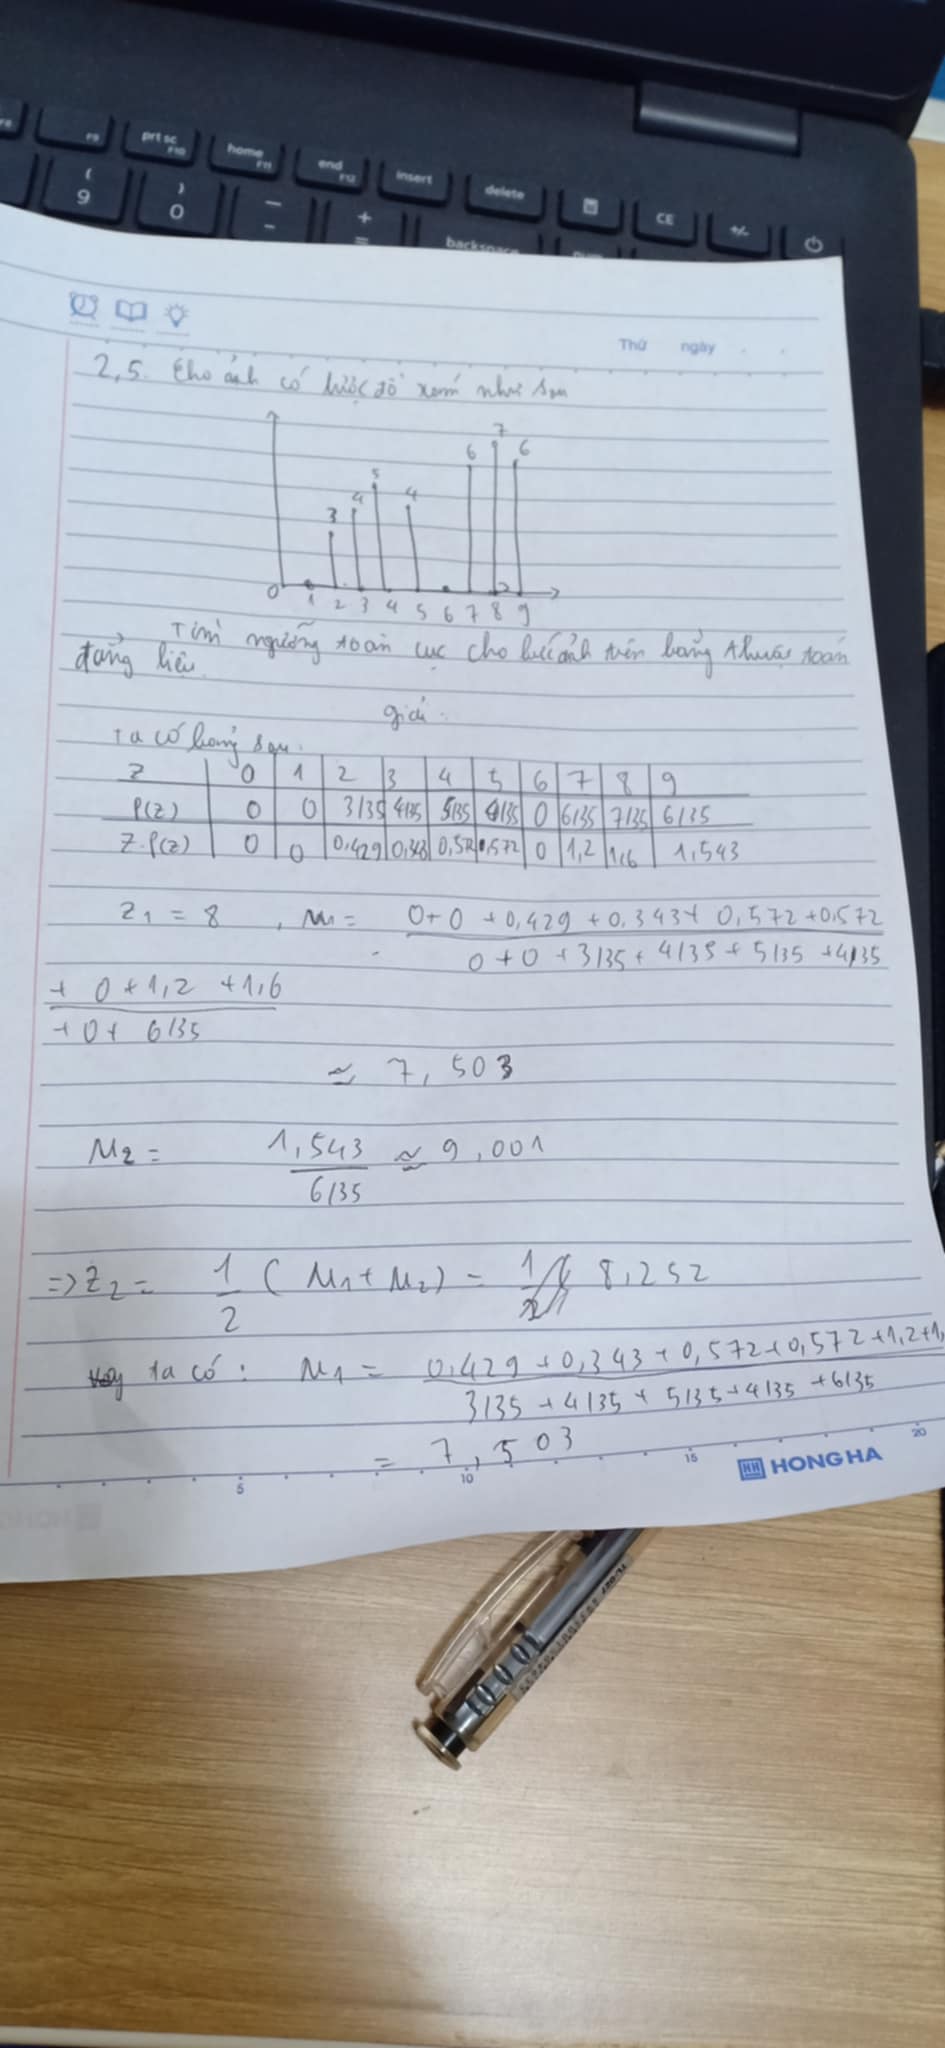 F8
F9
prt sc
F10
home
F11
end
F12
insert
delete
CE
+/-
(
9
)
0
—
-
+
=
backspace
Thứ ngày . .
2,5. Cho ảnh có lược đồ xám như sau
3 4 5 4 6 7 6
0 1 2 3 4 5 6 7 8 9
Tìm ngưỡng toàn cục cho bức ảnh trên bằng thuật toán
đẳng liệu
giải.
Ta có bảng sau.
Z 0 1 2 3 4 5 6 7 8 9
P(Z) 0 0 3/35 4/35 5/35 4/35 0 6/35 7/35 6/35
Z.P(Z) 0 0 0,429 0,343 0,572 0,572 0 1,2 1,6 1,543
Z1 = 8 , M1 = 0+0 +0,429 +0,343+ 0,572+0,572
0+0 +3/35+ 4/35+ 5/35 +4/35
+ 0+1,2 +1,6
+0+ 6/35
≈ 7,503
M2 = 1,543 ≈ 9,001
6/35
=> Z2 = 1 ( M1+ M2) = 1 8,252
2
ta có: M1 = 0,429+0,343+0,572+0,572+1,2+1,
3/35 +4/35 + 5/35+4/35 +6/35
= 7,503
5 10 15 20
HH HONG HA